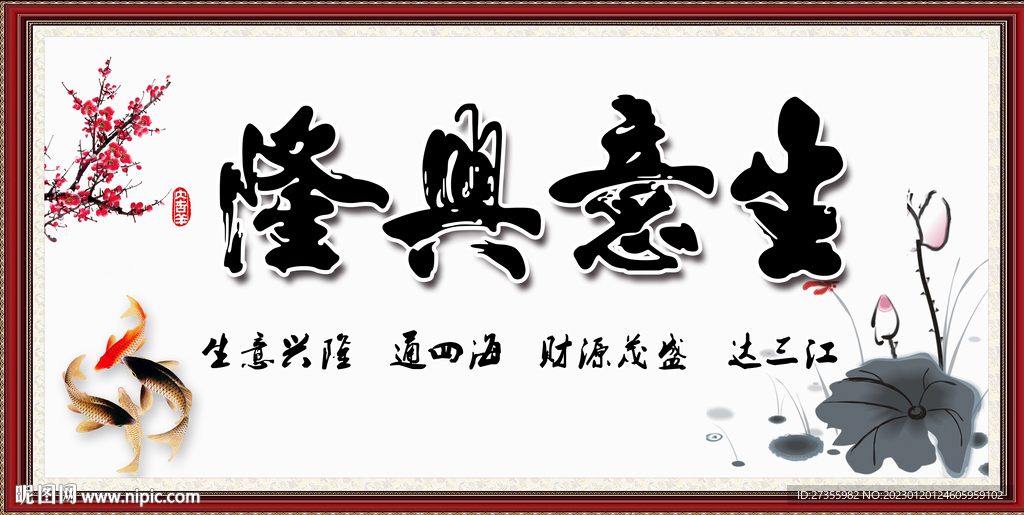 生意興隆
生意兴隆 通四海 财源茂盛 达三江
昵图网 www.nipic.com
ID:27355982 NO:20230120124605959102